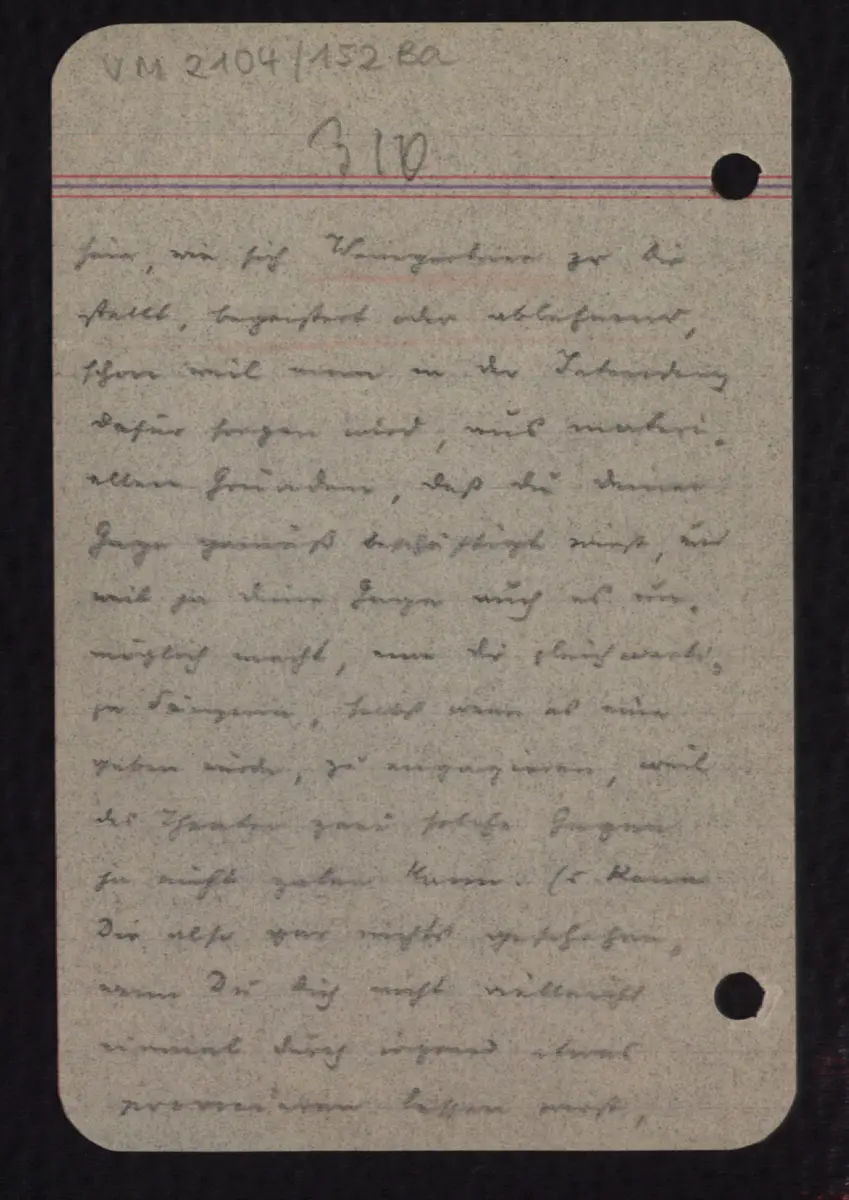 VM 2104/152 Ba
310
sein, wie sich Weingartner zu Dir
stellt, begeistert oder ablehnend,
schon weil man in der Intendanz
dafür sorgen wird, aus materi-
ellen Gründen, daß du deiner
Gage gemäß beschäftigt wirst, und
weil ja deine Gage auch es un-
möglich macht, eine dir gleichwerti-
ge Sängerin, selbst wenn es eine
geben würde, zu engagieren, weil
das Theater zwei solche Gagen
ja nicht zalen kann. Es kann
Dir also gar nichts geschehen,
wenn Du Dich nicht vielleicht
einmal durch irgend etwas
provocieren lassen wirst,